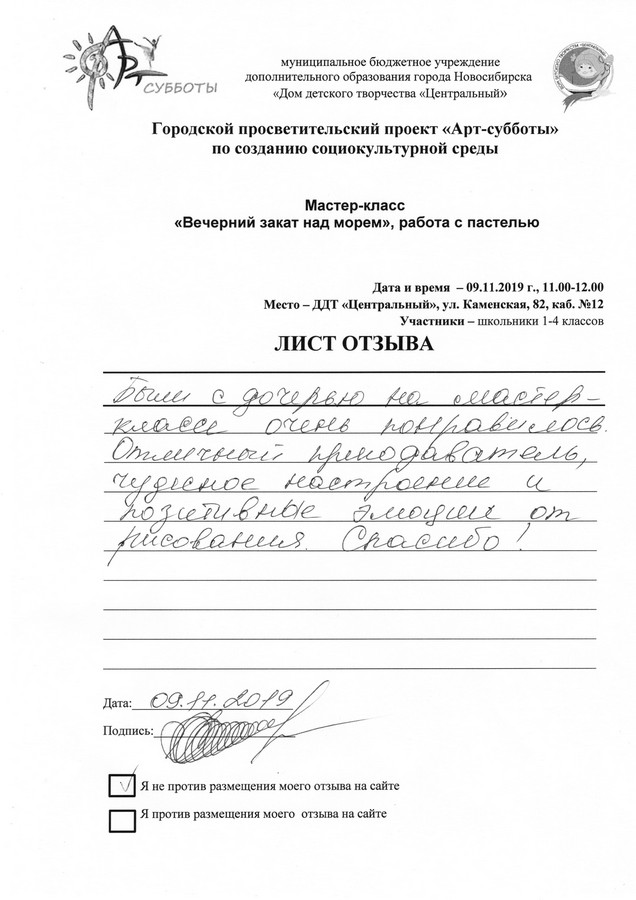 АРТ
СУББОТЫ
муниципальное бюджетное учреждение
дополнительного образования города Новосибирска
«Дом детского творчества «Центральный»
Городской просветительский проект «Арт-субботы»
по созданию социокультурной среды
Мастер-класс
«Вечерний закат над морем», работа с пастелью
Дата и время – 09.11.2019 г., 11.00-12.00
Место – ДДТ «Центральный», ул. Каменская, 82, каб. №12
Участники – школьники 1-4 классов
ЛИСТ ОТЗЫВА
Были с дочерью на мастер-
классе очень понравилось.
Отличный преподаватель,
чудесное настроение и
позитивные эмоции от
рисования. Спасибо!
Дата: 09.11.2019
Подпись:
Я не против размещения моего отзыва на сайте
Я против размещения моего отзыва на сайте